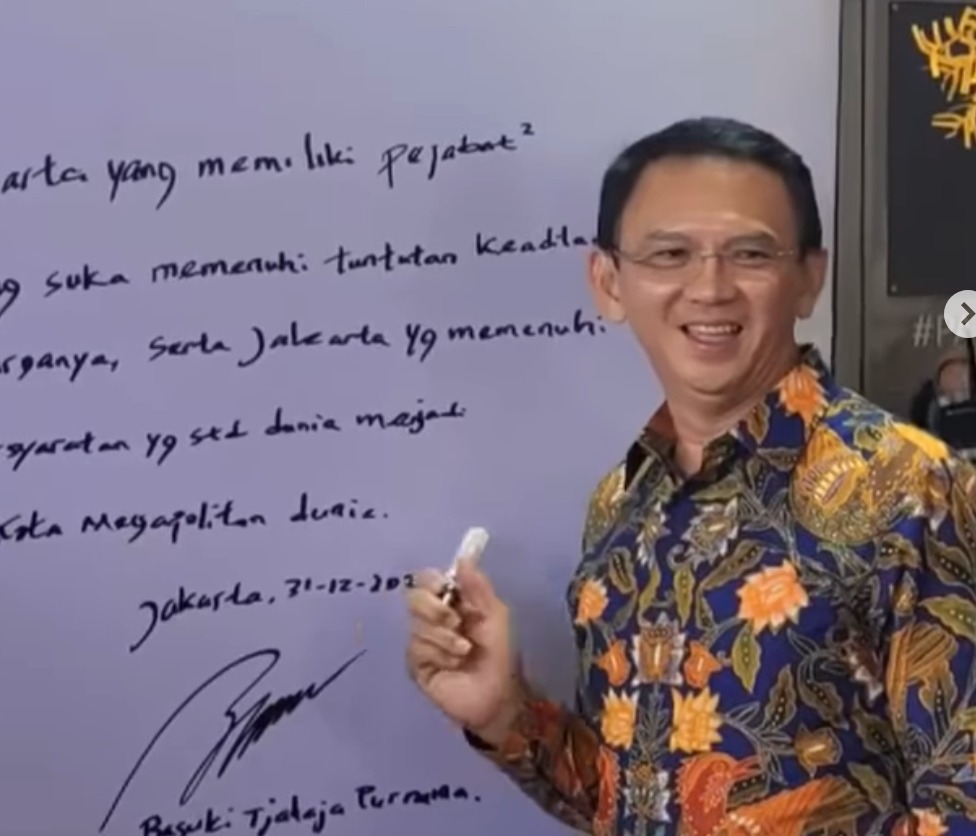 arta yang memiliki pejabat²
g suka memenuhi tuntutan keadila
rganya, serta Jakarta yg memenuhi
syaratan yg std dunia menjadi
Kota Megapolitan dunia.
Jakarta, 31-12-202
Basuki Tjahaja Purnama.
#